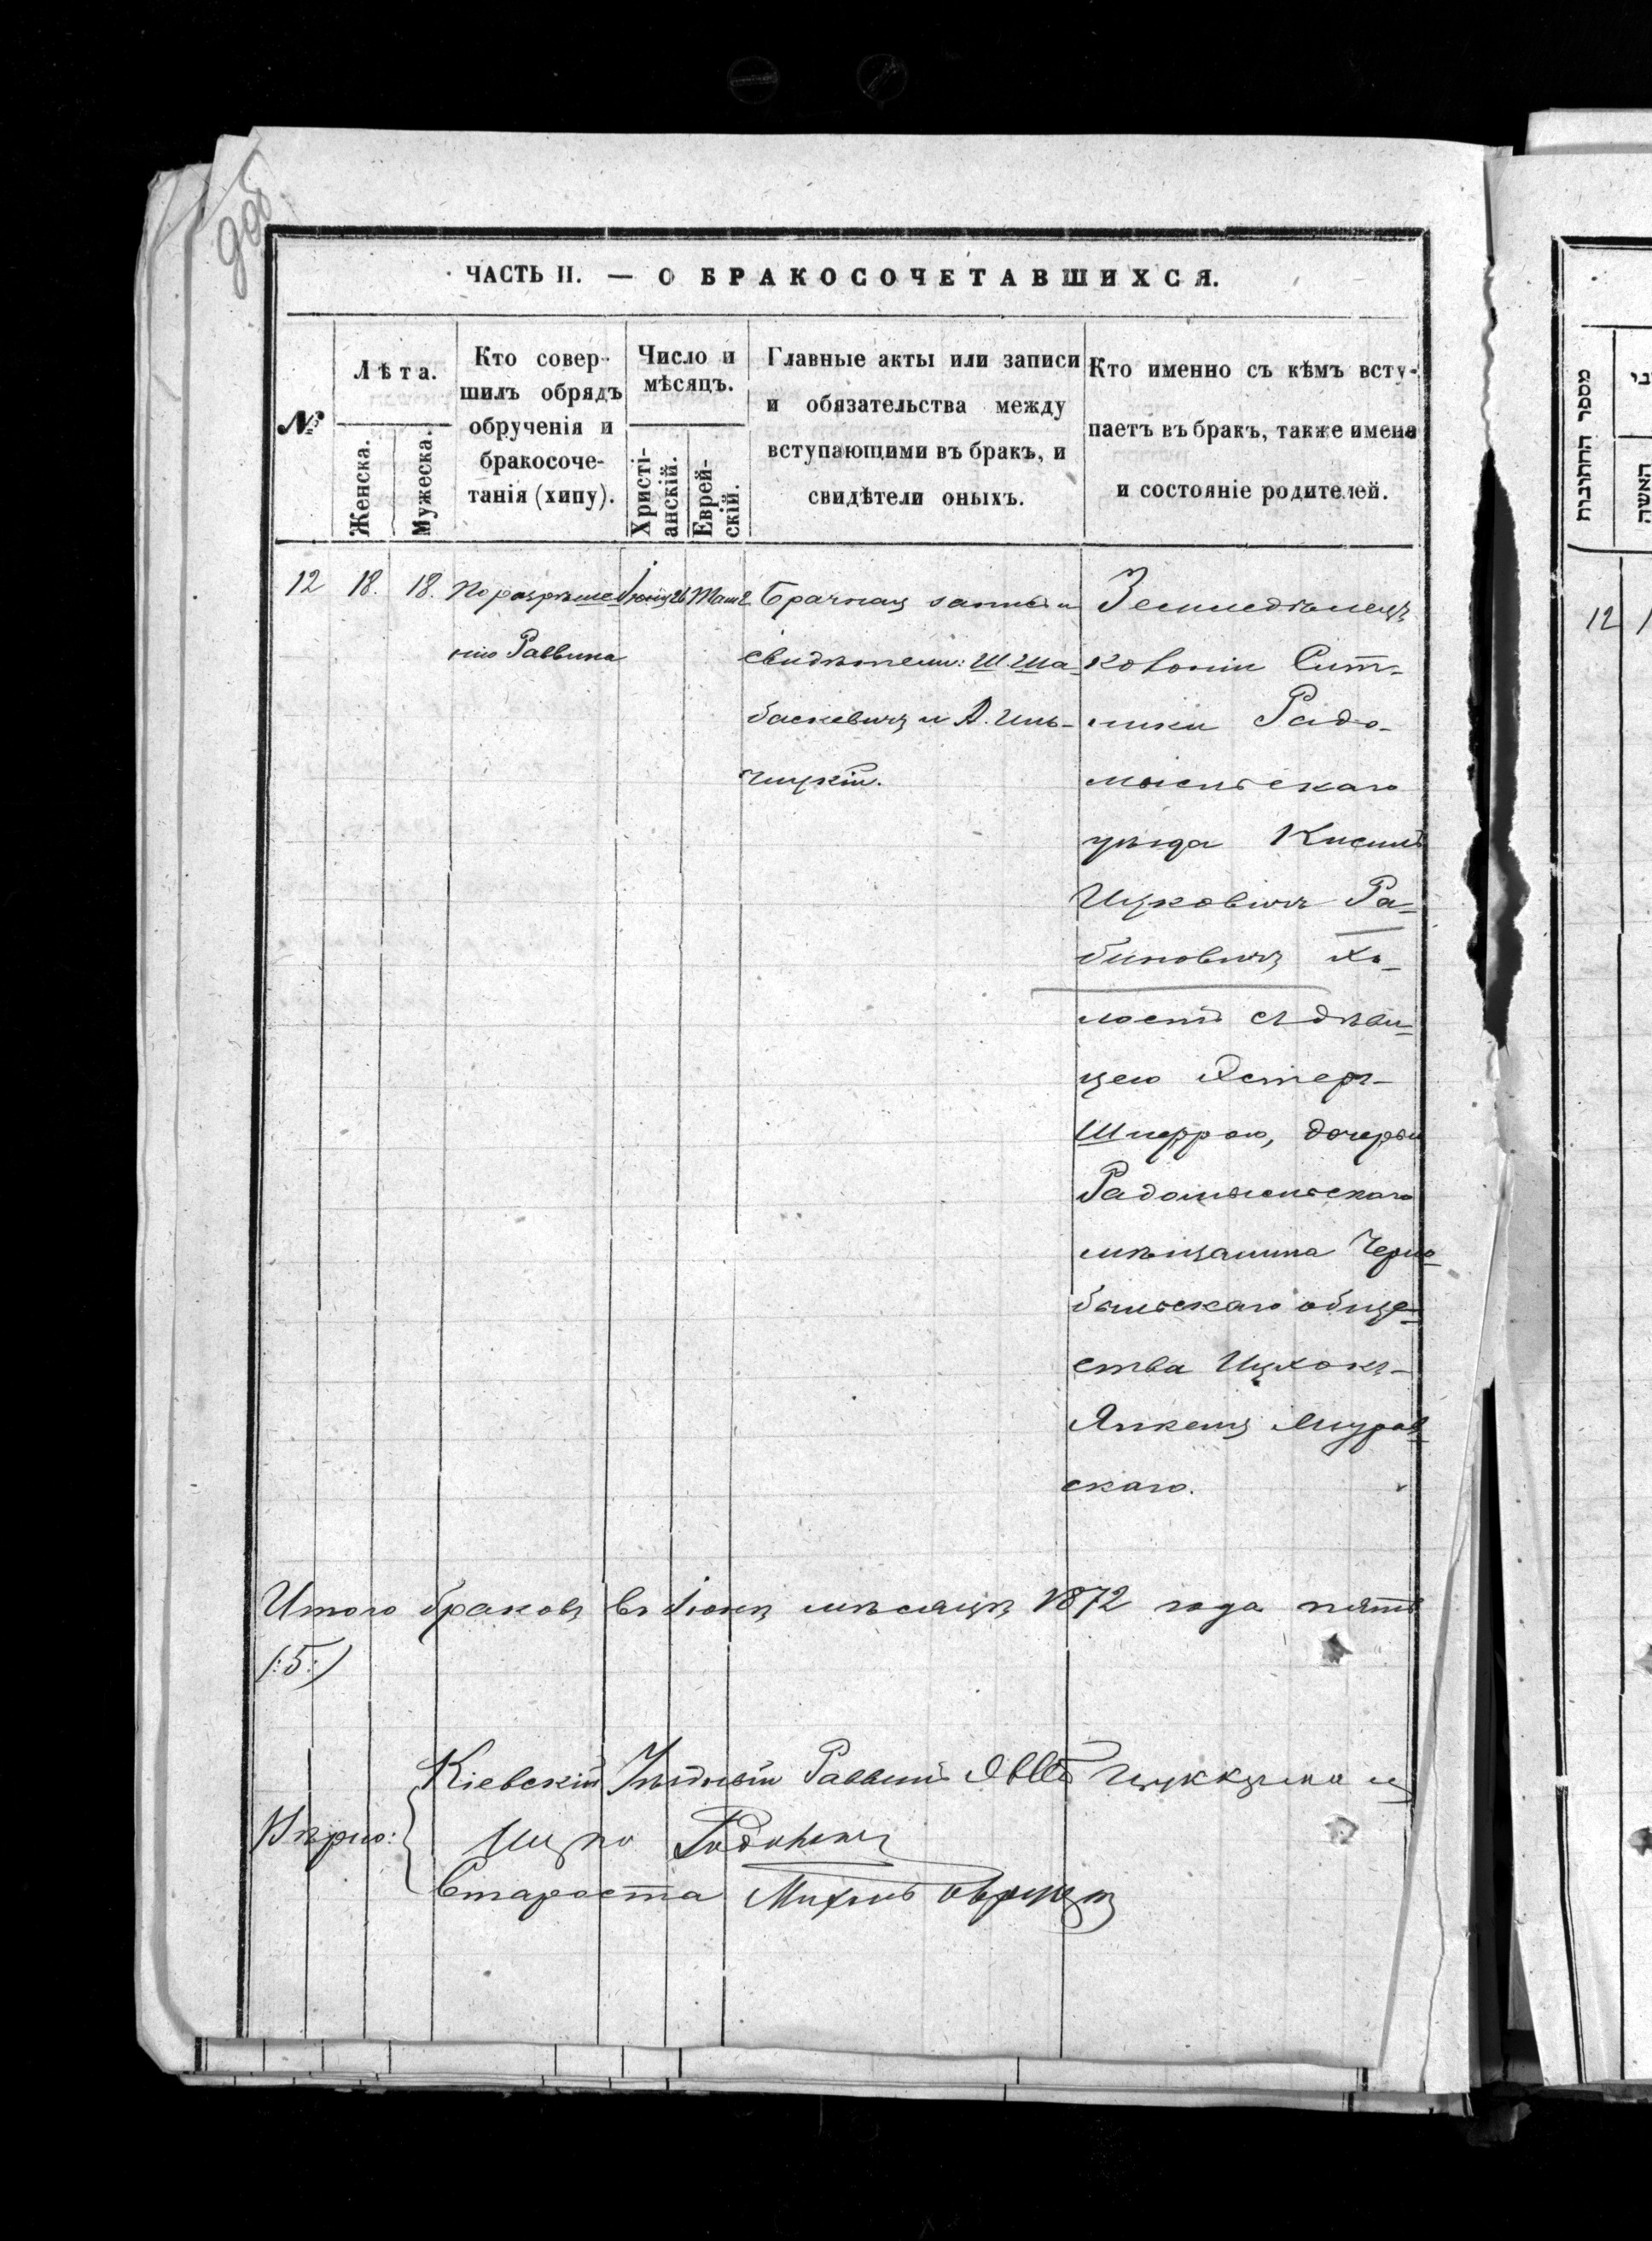 ЧАСТЬ II. — О БРАКОСОЧЕТАВШИХСЯ.
№
Лѣта.
Женска.
Мужеска.
Кто совер-
шилъ обрядъ
обрученія и
бракосоче-
танія (хипу).
Число и
мѣсяцъ.
Христі-
анскій.
Еврей-
скій.
Главные акты или записи
и обязательства между
вступающими въ бракъ, и
свидѣтели оныхъ.
Кто именно съ кѣмъ всту-
паетъ въ бракъ, также имена
и состояніе родителей.
12
18.
18.
По разрѣше-
нію Раввина
Іюня
Брачная запись и
свидѣтели: Ш Ша-
баскевичъ и А. Иль-
чицкій.
Земледѣлецъ
колоніи Сит-
ники Радо-
мысльскаго
уѣзда Кисиль
Ицковичъ Ра-
биновичъ хо-
лостъ съ дѣви-
цею Эстеръ-
Шперрою, дочерью
Радомысльскаго
мѣщанина Черно-
быльскаго обще-
ства Ицхокъ-
Янкеля Мурав-
скаго.
Итого браковъ въ Іюнѣ мѣсяцѣ 1872 года пять
(:5:)
Вѣрно:
Кіевскій Уѣздный Раввинъ Цуккерманъ
Ицко
Староста
מספר החתונות
האשה
12